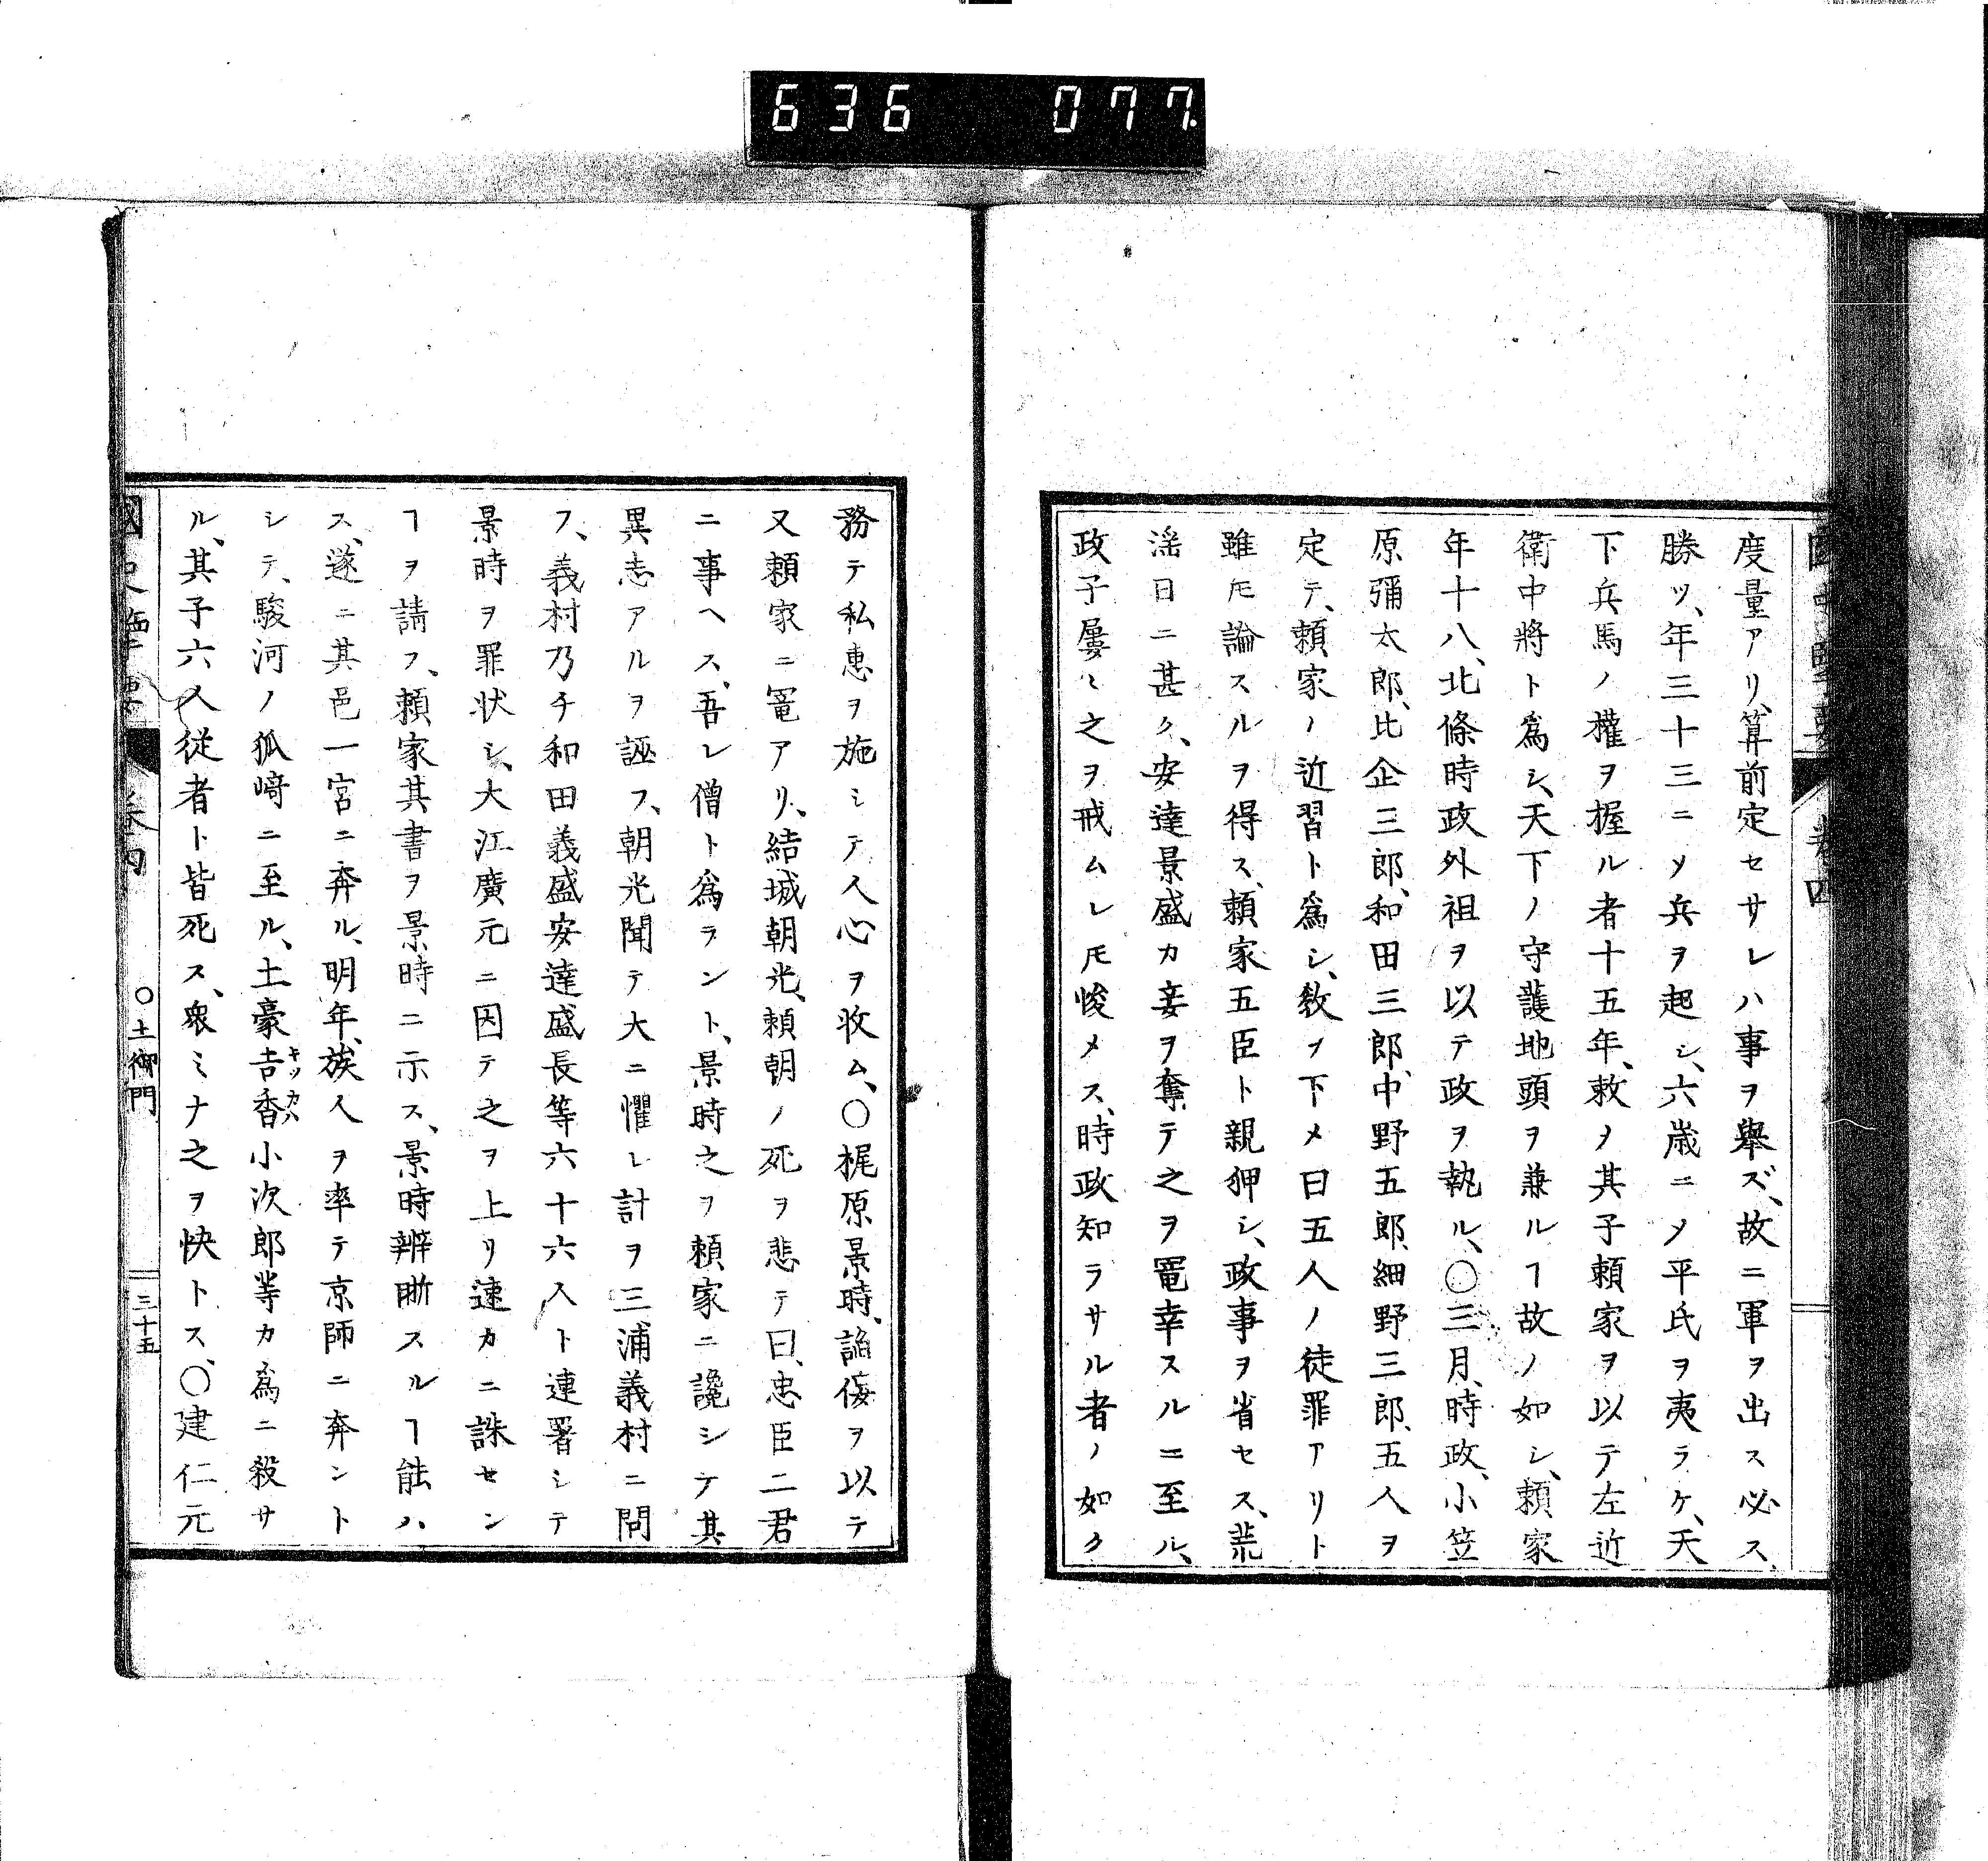 636 077
度量アリ、算前定セサレハ事ヲ擧ズ、故ニ軍ヲ出ス必ス、
勝ツ、年三十三ニ〆兵ヲ起シ、六歳ニ〆平氏ヲ夷ラケ、天
下兵馬ノ權ヲ握ル者十五年、敕〆其子頼家ヲ以テ左近
衛中將ト爲シ、天下ノ守護地頭ヲ兼ルヿ故ノ如シ、頼家
年十八、北條時政外祖ヲ以テ政ヲ執ル、〇三月、時政、小笠
原彌太郎、比企三郎、和田三郎、中野五郎、細野三郎、五人ヲ
定テ、頼家ノ近習ト爲シ、敎ヲ下メ曰五人ノ徒罪アリト
雖𪜈論スルヲ得ス、頼家五臣ト親狎シ、政事ヲ省セス、荒
淫日ニ甚ク、安達景盛カ妾ヲ奪テ之ヲ寵幸スルニ至ル、
政子屢〻之ヲ戒ムレ𪜈悛メス、時政知ラサル者ノ如ク
務テ私惠ヲ施シテ人心ヲ收ム、〇梶原景時、諂侫ヲ以テ
又頼家ニ寵アリ、結城朝光、頼朝ノ死ヲ悲テ曰、忠臣二君
ニ事ヘス、吾レ僧ト爲ラント、景時之ヲ頼家ニ讒シテ其
異志アルヲ誣フ、朝光聞テ大ニ懼レ計ヲ三浦義村ニ問
フ、義村乃チ和田義盛安達盛長等六十六人ト連署シテ
景時ヲ罪状シ、大江廣元ニ因テ之ヲ上リ速カニ誅セン
ヿヲ請フ、頼家其書ヲ景時ニ示ス、景時辨晰スルヿ能ハ
ス、遂ニ其邑一宮ニ奔ル、明年、族人ヲ率テ京師ニ奔ント
シテ、駿河ノ狐﨑ニ至ル、土豪吉香キッカハ小次郎等カ爲ニ殺サ
ル、其子六人從者ト皆死ス、衆ミナ之ヲ快トス、〇建仁元
國史擥要 卷四 〇土御門 三十五